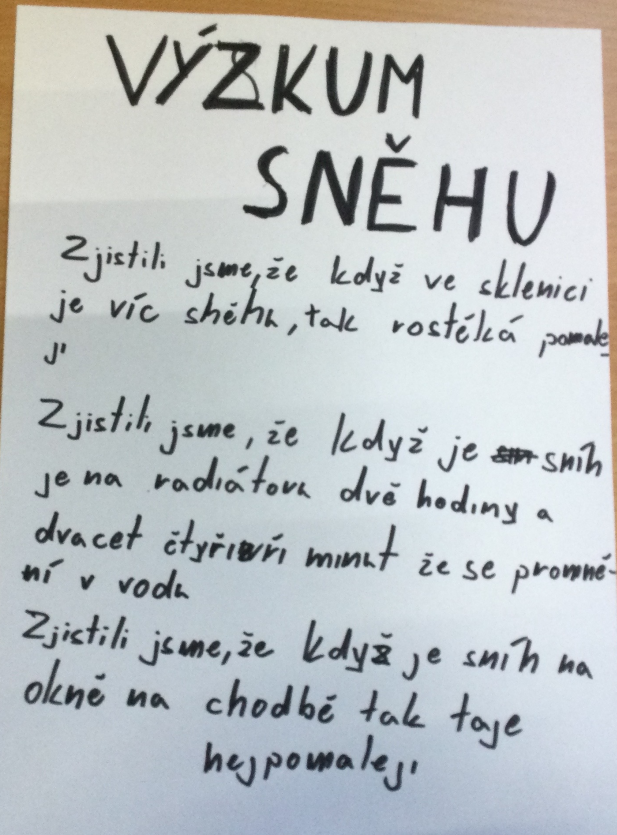 VÝZKUM
SNĚHU
Zjistili jsme, že když ve sklenici
je víc sněhu, tak rostéká pomale
ji
Zjistili jsme, že když je sníh
je na radiátoru dvě hodiny a
dvacet čtyři minut že se promně-
ní v vodu
Zjistili jsme, že když je sníh na
okně na chodbě tak taje
nejpomaleji